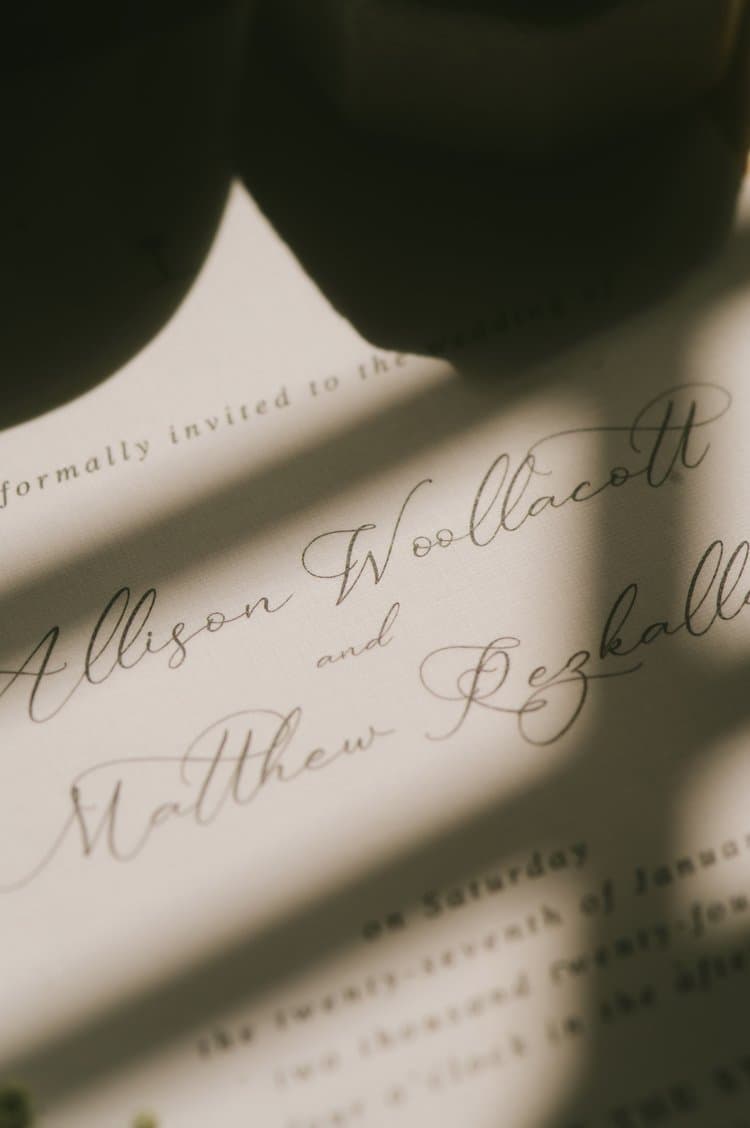 formally invited to the wedding of
Allison Woollacott
and
Matthew Rezkalla
on Saturday
the twenty-seventh of January
two thousand twenty-four
o'clock in the
THE